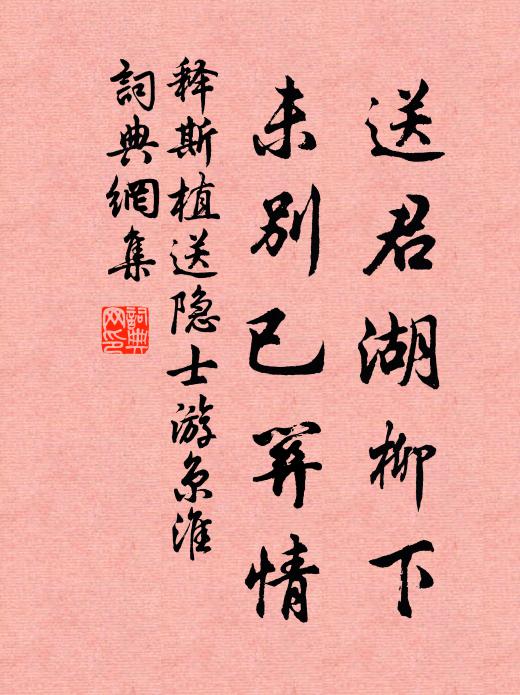 送君湖柳下
未别已关情
释斯植送隐士游京淮
詞典網集
詞典网印